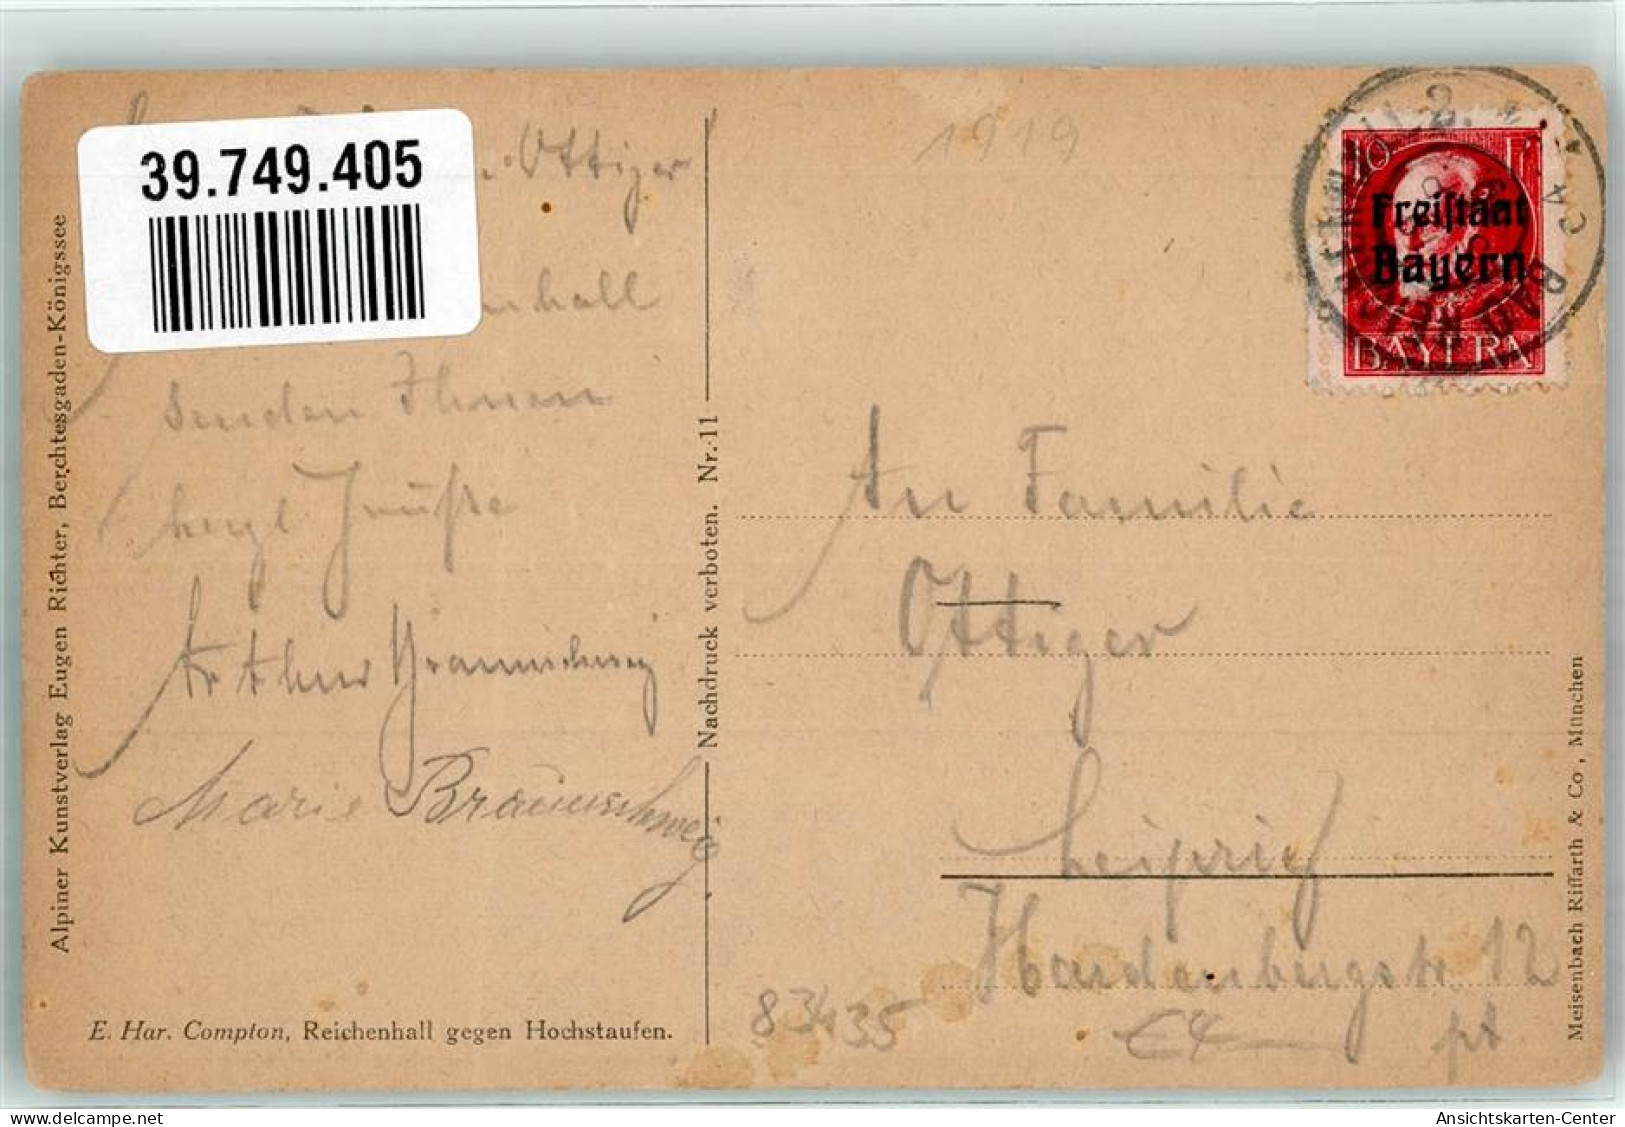 39.749.405
Ottiger
hall
senden Ihnen
herzl. Grüße
Arthur Braunschweig
Marie Braunschweig.
Alpiner Kunstverlag Eugen Richter, Berchtesgaden-Königssee
E. Har. Compton, Reichenhall gegen Hochstaufen.
Nachdruck verboten. Nr. 11
1919
10
Freistaat
Bayern
BAYERN
BAD REICHENHALL 2.
An Familie
Ottiger
Leipzig
Hardenbergstr. 12
pt
83435
Meisenbach Riffarth & Co, München
Ansichtskarten-Center